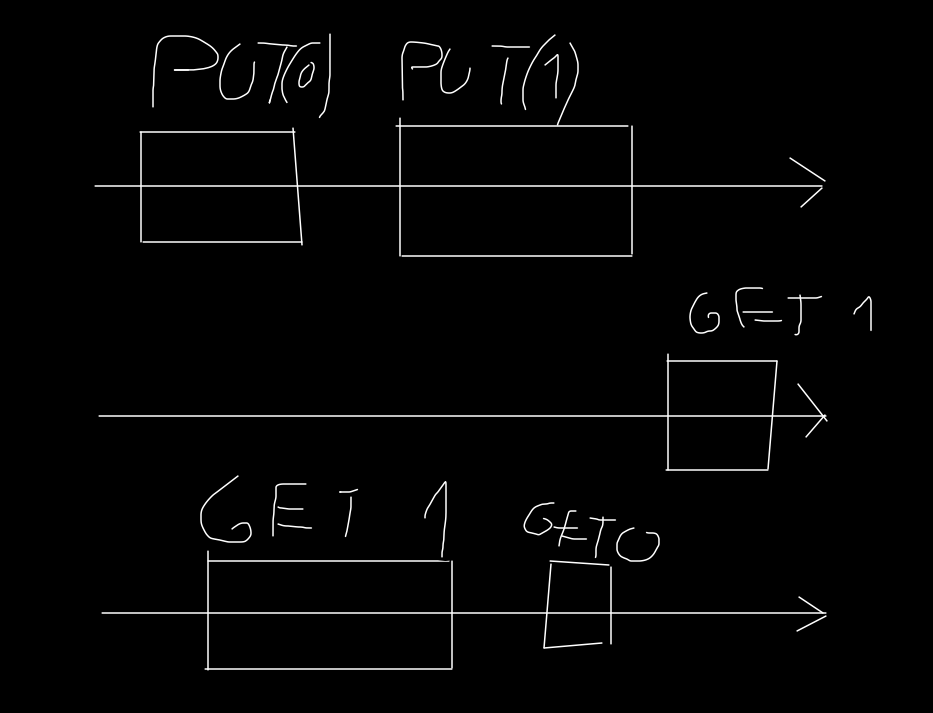 PUT(0) PUT(1)
GET 1
GET 1 GET0